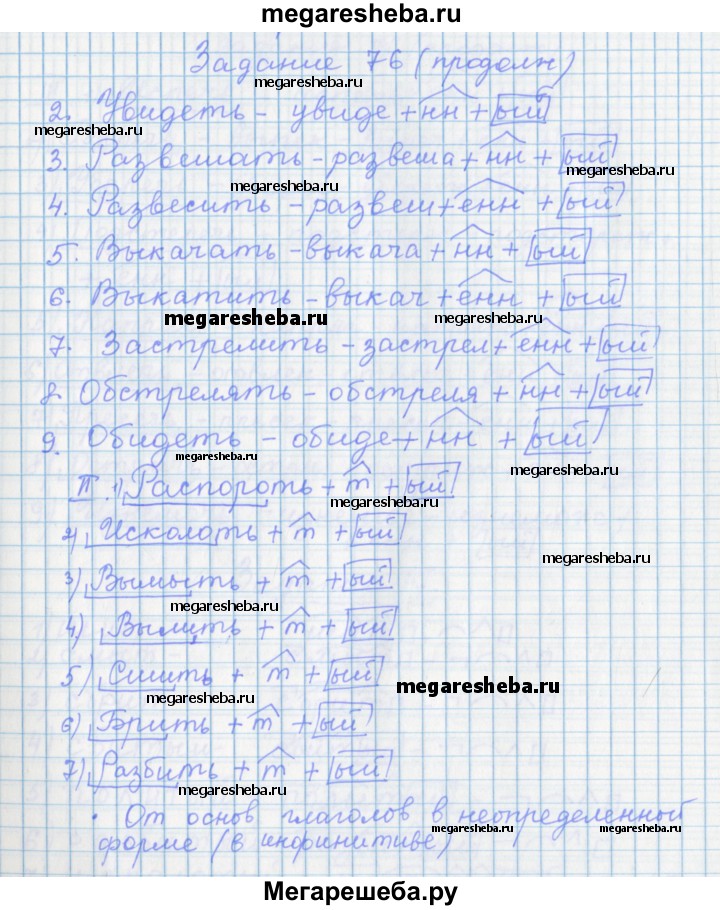 megaresheba.ru
Задание 76 (продолж)
megaresheba.ru
2. Увидеть - увиде + нн + ый
megaresheba.ru
3. Развешать - развеша + нн + ый
megaresheba.ru
megaresheba.ru
4. Развесить - развеш + енн + ый
5. Выкачать - выкача + нн + ый
6. Выкатить - выкач + енн + ый
megaresheba.ru
megaresheba.ru
7. Застрелить - застрел + енн + ый
8 Обстрелять - обстреля + нн + ый
9. Обидеть - обиде + нн + ый
megaresheba.ru
megaresheba.ru
II. 1) Распороть + т + ый
megaresheba.ru
2) Исколоть + т + ый
megaresheba.ru
3) Вымыть + т + ый
megaresheba.ru
4) Вылить + т + ый
5) Сшить + т + ый
megaresheba.ru
6) Брить + т + ый
7) Разбить + т + ый
megaresheba.ru
· От основ глаголов в неопределенный
megaresheba.ru
megaresheba.ru
форме (в инфинитиве)
Мегарешеба.ру